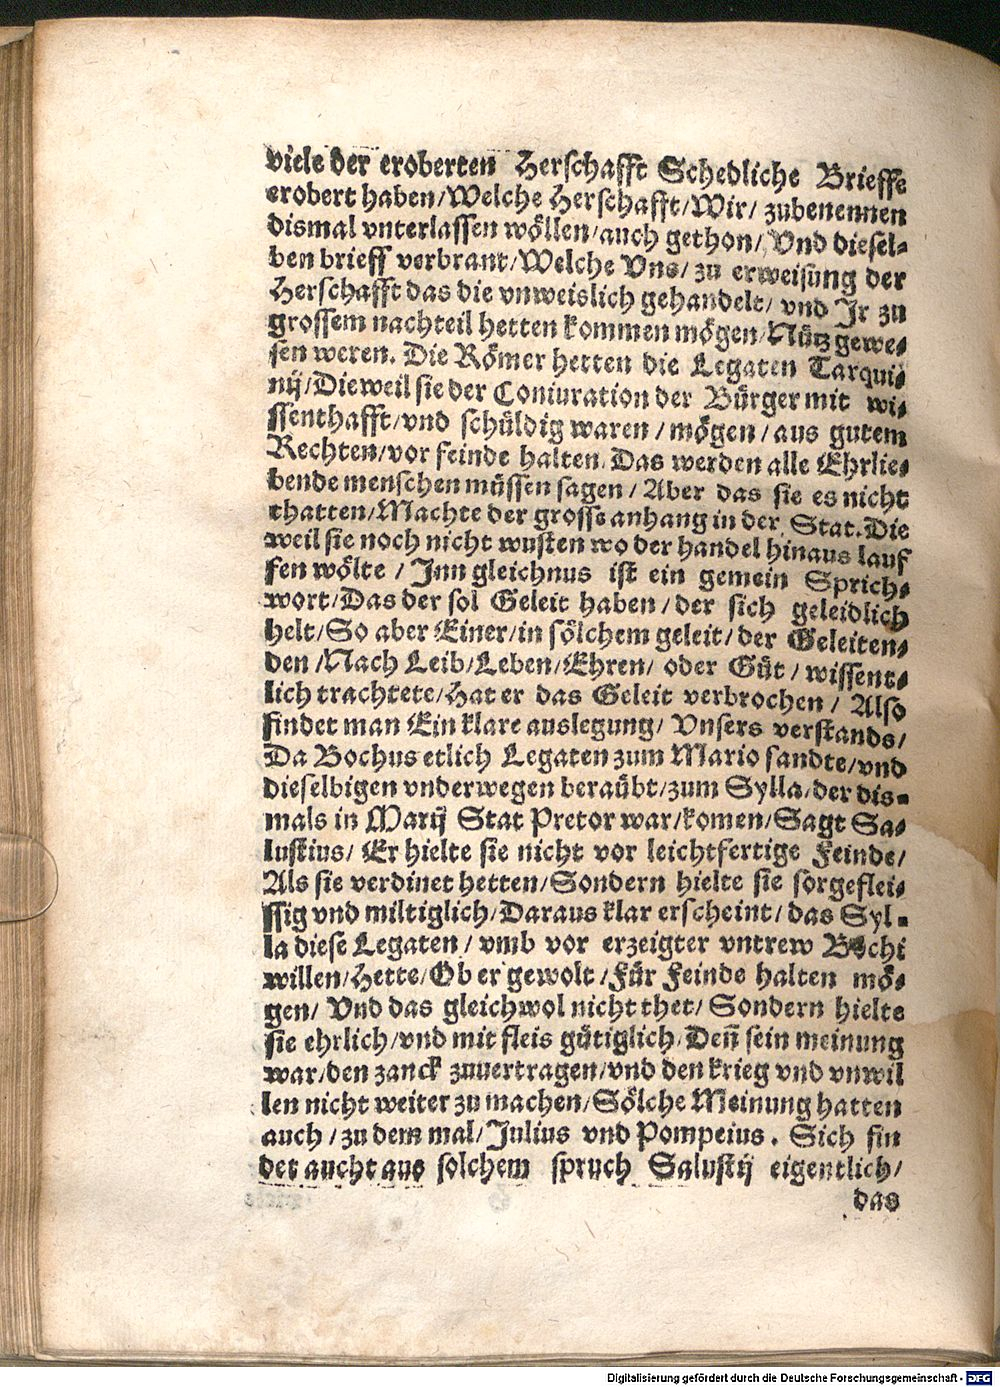 viele der eroberten Herschafft Schedliche Brieffe
erobert haben/Welche Herschafft/Wir/ zubenennen
dismal vnterlassen wöllen/auch gethon/ Vnd diesel-
ben brieff verbrant/Welche Vns/ zu erweisung der
Herschafft das die vnweislich gehandelt/ vnd Jr zu
grossem nachteil hetten kommen mögen/Nütz gewe-
sen weren. Die Römer hetten die Legaten Tarqui-
nij/Dieweil sie der Coniuration der Bürger mit wi-
ssenthafft/vnd schüldig waren/mögen/aus gutem
Rechten/vor feinde halten. Das werden alle Ehrlie-
bende menschen müssen sagen/ Aber das sie es nicht
thatten/Machte der grosse anhang in der Stat. Die
weil sie noch nicht wusten wo der handel hinaus lauf
fen wölte/ Jnn gleichnus ist ein gemein Sprich-
wort/Das der sol Geleit haben/der sich geleidlich
helt/So aber Einer/in sölchem geleit/der Geleiten-
den/Nach Leib/Leben/Ehren/ oder Güt/wissent-
lich trachtete/Hat er das Geleit verbrochen/ Also
findet man Ein klare auslegung/ Vnsers verstands/
Da Bochus etlich Legaten zum Mario sandte/vnd
dieselbigen vnderwegen beraübt/zum Sylla/der dis-
mals in Marij Stat Pretor war/komen/Sagt Sa-
lustius/ Er hielte sie nicht vor leichtfertige Feinde/
Als sie verdinet hetten/Sondern hielte sie sorgeflei-
ssig vnd miltiglich/Daraus klar erscheint/das Syl-
la diese Legaten/vmb vor erzeigter vntrew Bochi
willen/Hette/Ob er gewolt/Für Feinde halten mö-
gen/ Vnd das gleichwol nicht thet/Sondern hielte
sie ehrlich/vnd mit fleis gütiglich/Deñ sein meinung
war/den zanck zuuertragen/vnd den krieg vnd vnwil
len nicht weiter zu machen/Sölche Meinung hatten
auch/zu dem mal/Julius vnd Pompeius. Sich fin
det aucht aus solchem spruch Salustij eigentlich/
das
Digitalisierung gefördert durch die Deutsche Forschungsgemeinschaft - DFG